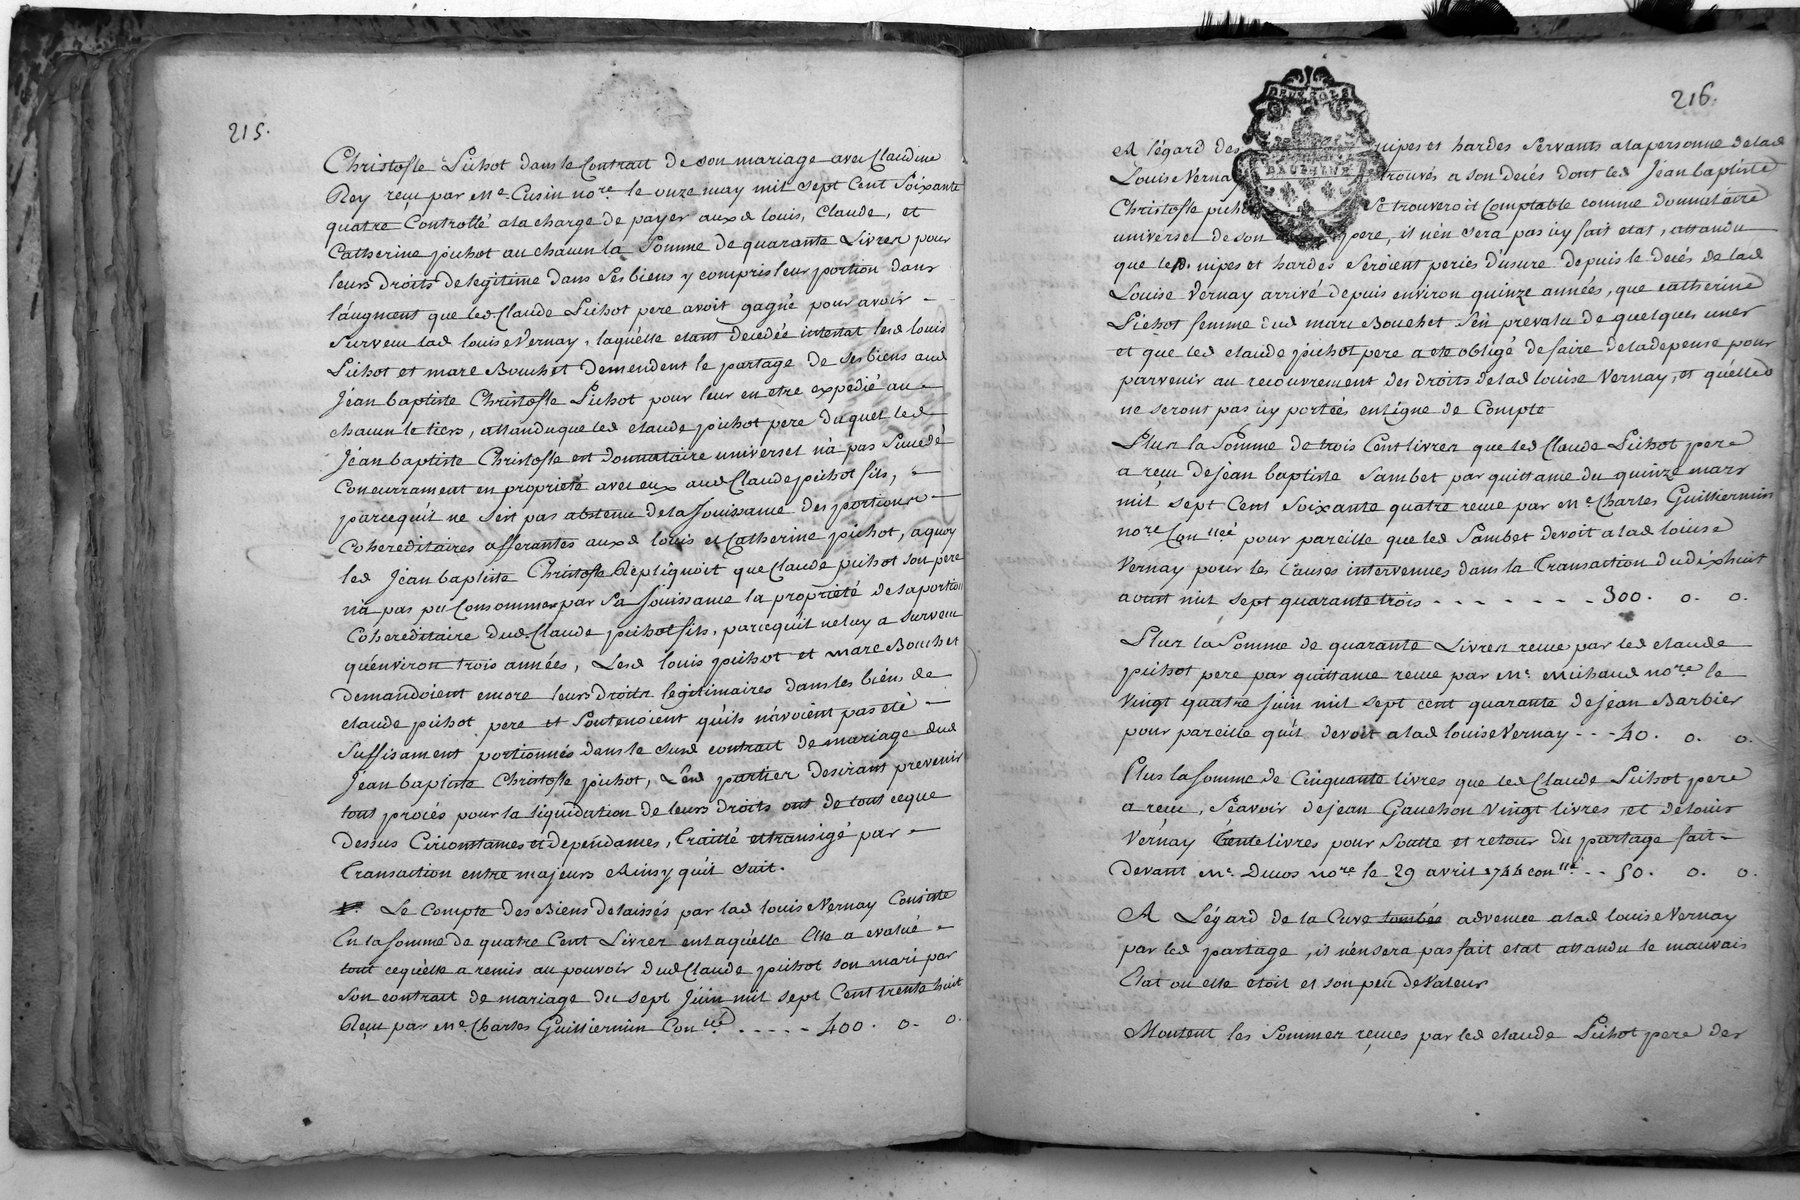 215.
Christofle Pichot dans le Contrait de son mariage avec Claudine
Rey reçu par Me. Cusin nore. le onze may mil sept Cent Soixante
quatre Controllé a la charge de payer auxd. louis, Claude, et
Catherine pichot au chacun la Somme de quarante Livres pour
leurs droits de legitime dans ses biens y compris leur portion dans
l'augment que led. Claude Pichot pere avoit gagné pour avoir -
survecu lad louise Vernay, laquelle etant decedée intestat lesd louis
Pichot et marc Bouchet demendent le partage de ses biens aud
Jéan baptiste Christofle Pichot pour leur en etre expédié au -
chacun le tiers, attandu que led claude pichot pere duquel led
Jéan baptiste Christofle est donnataire universel n'a pas Succedé
Concurrament en proprieté avec eux aud Claude pichot fils, -
parcequ'il ne s'est pas abstenu de la Jouissance des portions -
Cohereditaires afferantes auxd. louis et Catherine pichot, a quoy
led Jéan baptiste Christofle Repliquoit que Claude pichot son pere
n'a pas pû Consommer par sa Jouissance la proprieté de la portion
Cohereditaire dud. Claude pichot fils, parcequ'il ne luy a survecu
qu'environ trois années, Lesd louis pichot et marc Bouchet
demandoient encore leurs droits legitimaires dans les biens de
claude pichot pere et soutenoient qu'ils n'avoient pas eté -
suffisament portionnés dans le susd contrait de mariage dud
Jean baptiste Christofle pichot, Lesd parties desirant prevenir
tout procés pour la liquidation de leurs droits ont de tout ceque
dessus Circonstances et dependances, traitté et transigé par -
transaction entre majeurs Ainsy qu'il suit.
Le Compte des Biens delaissés par lad louise Vernay Consiste
En la somme de quatre Cent Livres en laquelle Elle a evalué -
tout cequ'elle a remis au pouvoir dud Claude pichot son mari par
son contrait de mariage du sept Juin mil sept Cent trente huit
Reçu par Me. Charles Guilliermin Conllé ..... 400. 0. 0.
216.
DEUX SOLS
DAUPHINE
A légard des nipes et hardes Servants a la personne de lad
Louise Vernay trouvés a son decés dont led Jéan baptiste
Christofle pichot se trouveroit Comptable comme donnataire
universel de son pere, il n'en sera pas icy fait etat, attandu
que led. nipes et hardes seroient peries d'usure depuis le decés de lad
Louise Vernay arrivé depuis environ quinze années, que catherine
Pichot femme dud marc Bouchet s'en prevalu de quelques unes
et que led claude pichot pere a eté obligé de faire de la depense pour
parvenir au recouvrement des droits de lad louise Vernay, et quélles
ne seront pas icy portées en ligne de Compte
Plus la somme de trois Cent livres que led Claude Pichot pere
a reçu de jéan baptiste Sambet par quittance du quinze mars
mil sept Cent Soixante quatre recue par Me. Charles Guilliermin
nore. Conllé pour pareille que led Sambet devoit a lad louise
Vernay pour les Causes intervenues dans la Transaction du dixhuit
avril mil sept quarante trois - - - - - - - 300. 0. 0.
Plus la Somme de quarante Livres recue par led claude
pichot pere par quittance recue par Me. Michaud nore. le
Vingt quatre Juin mil sept cent quarante de jéan Barbier
pour pareille qu'il devoit a lad louise Vernay - - - 40. 0. 0.
Plus la somme de Cinquante livres que led Claude Pichot pere
a recu, Scavoir de jean Gauchon Vingt livres, et de louis
Vernay tente livres pour Soutte et retour du partage fait -
devant Me. Ducos nore. le 29 avril 1744 conllé - - 50. 0. 0.
A Légard de la Cuve tombée advenue a lad louise Vernay
par led partage, il n'en sera pas fait etat attandu le mauvais
Etat ou elle etoit et son peu de Valeur
Montent les Sommes reçues par led claude Pichot pere des